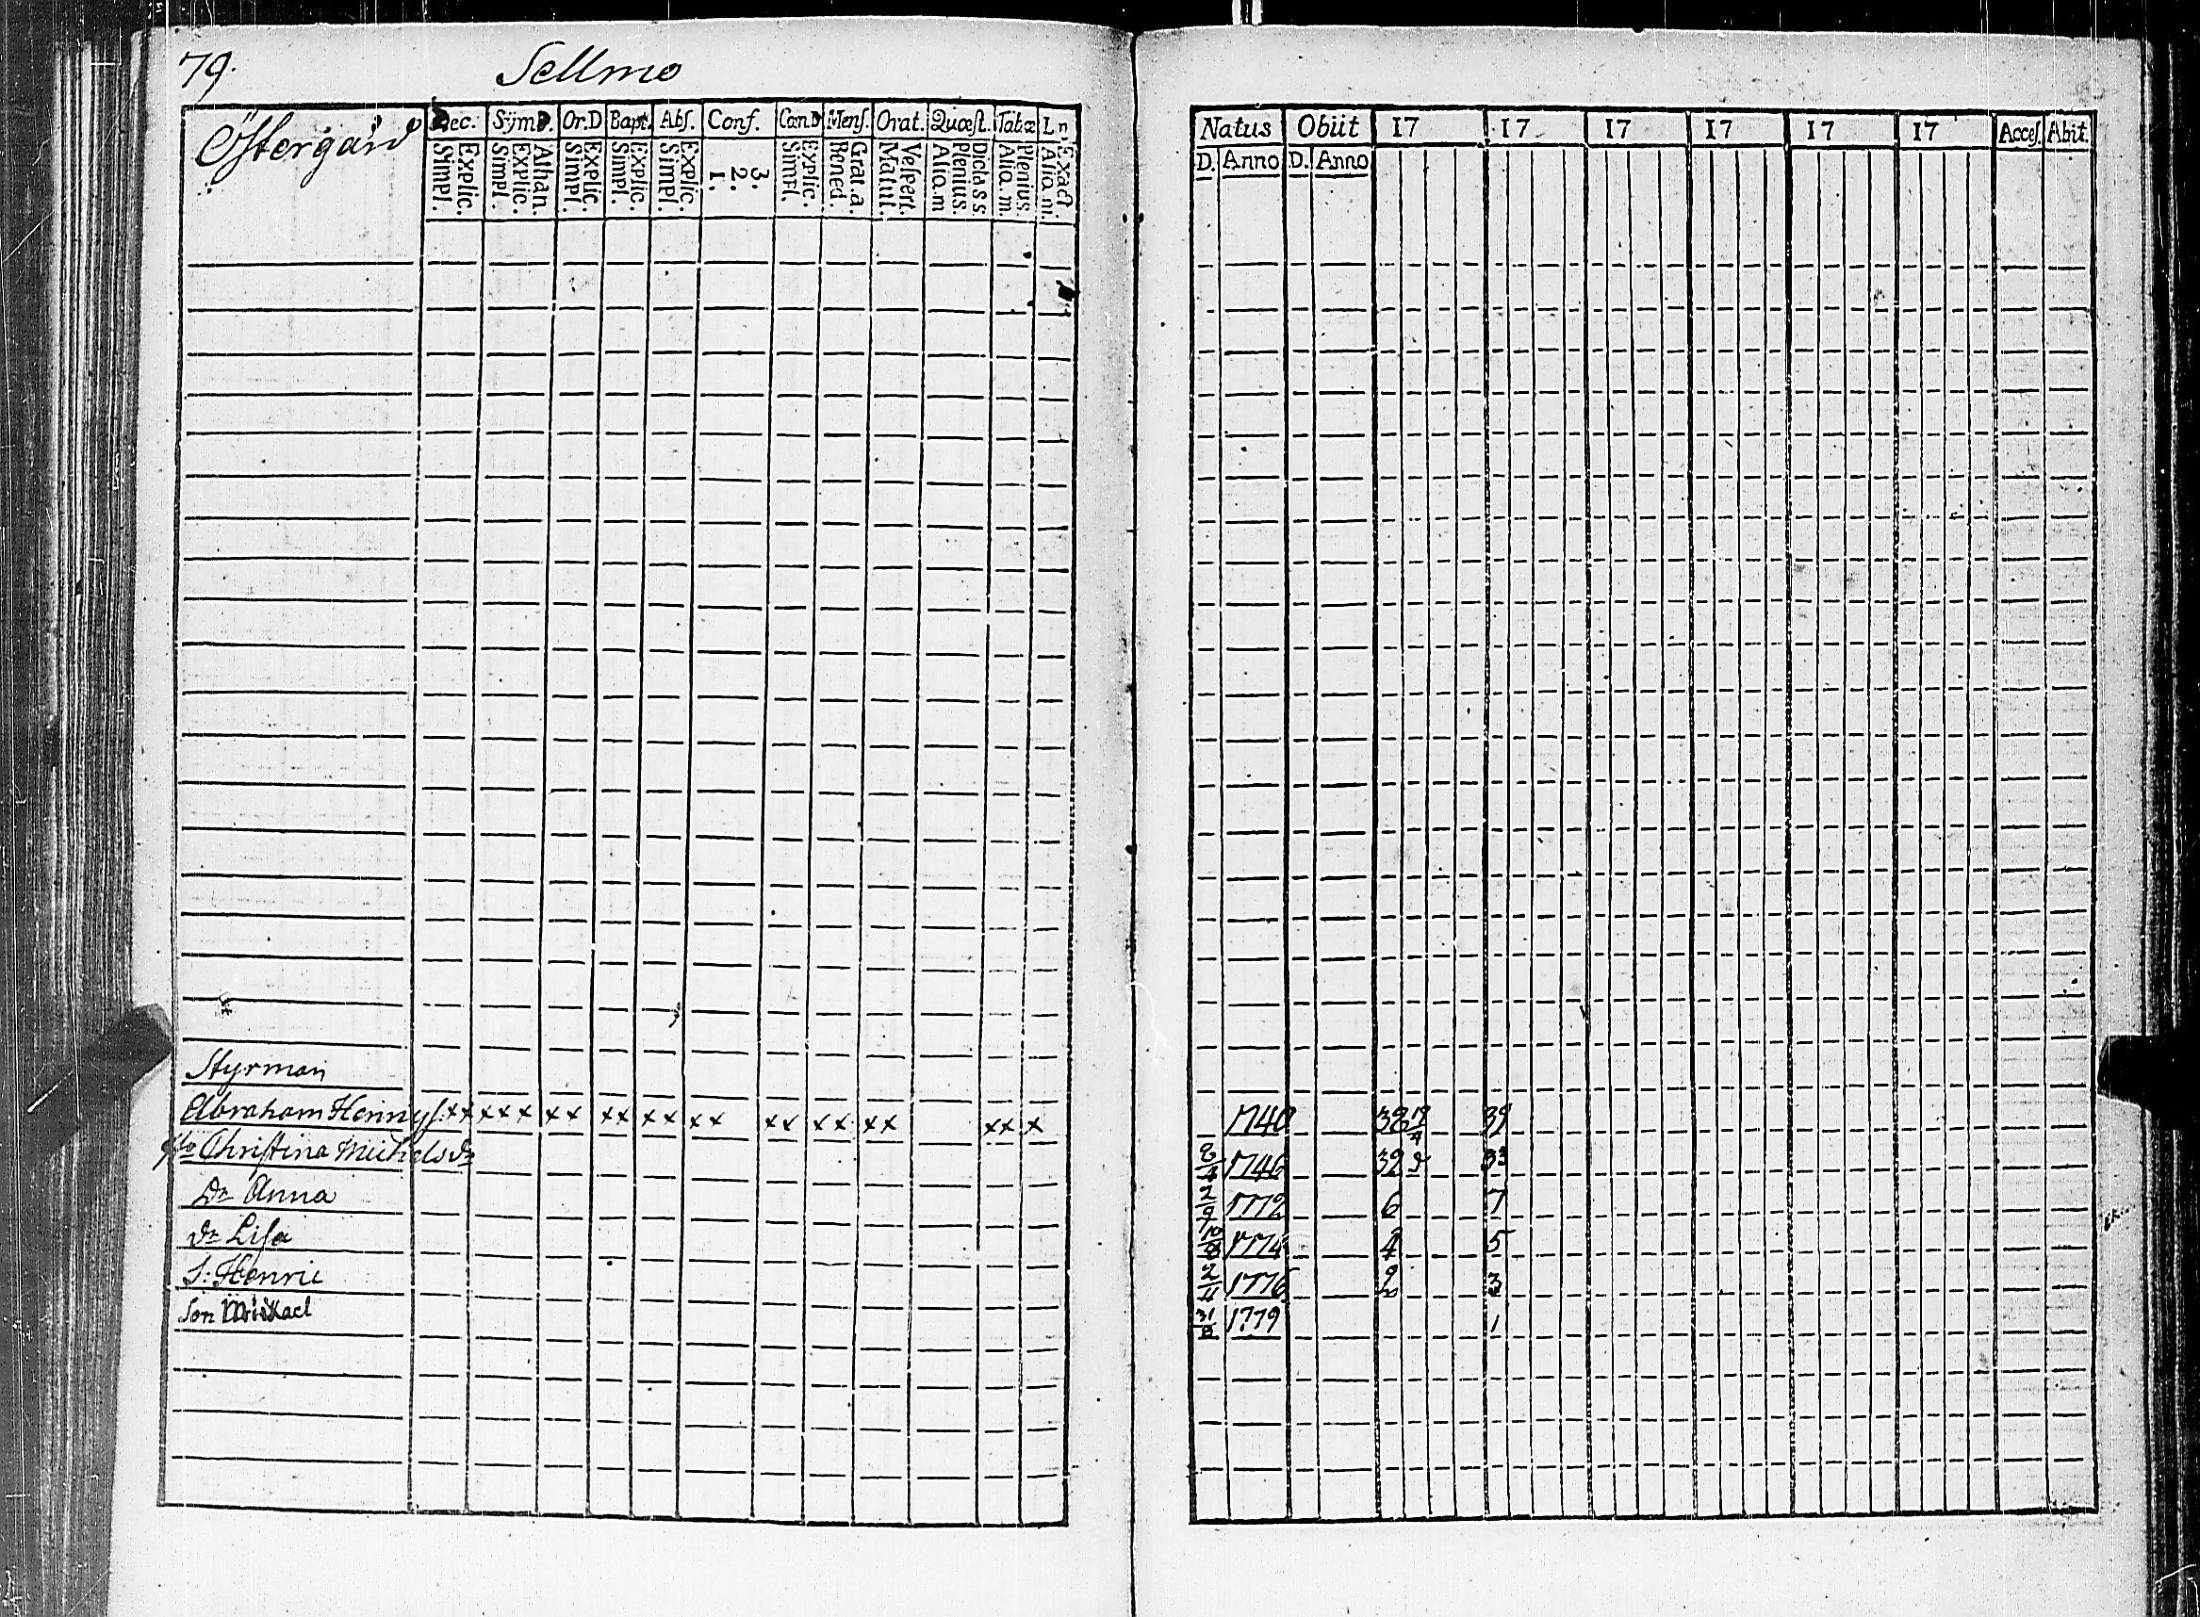 79.
Sellmo
Östergård
Dec. Symb. Or.D Bapt. Abſ. Conf. Cœn.D Menſ. Orat. Quæſt. Tab.æ
Simpl. Explic. Simpl. Explic. Athan. Simpl. Explic. Simpl. Explic. Simpl. Explic. 1. 2. 3. Simpl. Explic. Bened. Grat. a. Matut. Veſpert. Alio.m Plenius. Dicta SS. Alio. m. Plenius. Alio. m. Exact.
Styrman
Abraham Henriſ. x x x x x x x x x x x x x x x x x x x x x x
Chriſtina Michelsdr
Dr Anna
dr Liſa
S: Henric
Son Mickael
Natus Obiit 17 17 17 17 17 17 Acceſ. Abit.
D. Anno D. Anno
1740 38 39
8/4 1746 32 33
2/9 1772 6 7
1774 4 5
2/11 1776 2 3
31/8 1779 1